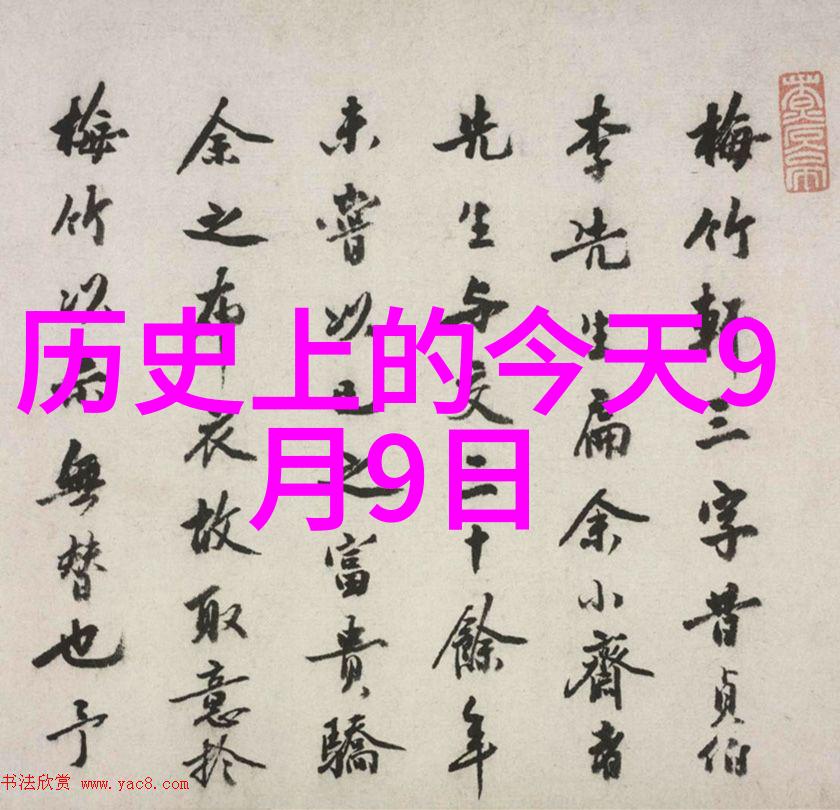 历史上的今天9
月9日
梅竹軒三字昔貞伯
李先生扁余小齋者
先生与交二十餘年
未嘗以己之富貴驕
余之布衣故取意於
梅竹以示無替也予
书法欣赏 www.yac8.com